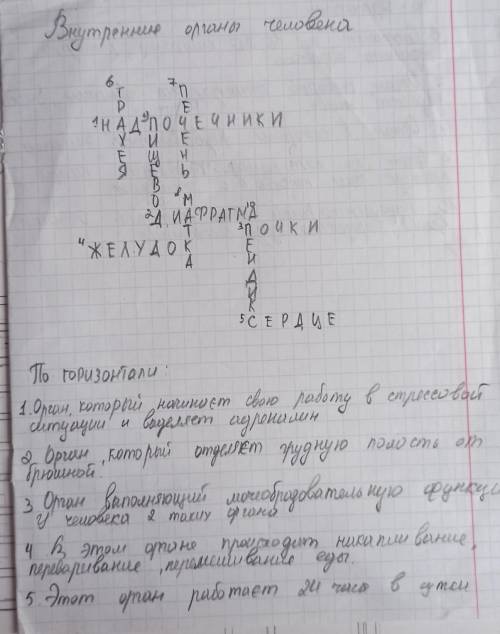 Внутренние органы человека
6 7
Т П
Р Е
1 НАДПОЧЕЧНИКИ
9
Х И Е
Е Щ Н
Я Е Ь
В
О 8 М
2 ДИАФРАГМА
10
Т 3 ПОЧКИ
4 ЖЕЛУДОК
А
Е
Н
Д
И
К
5 СЕРДЦЕ
По горизонтали:
1. Орган, который начинает свою работу в стрессовой
ситуации и выделяет адреналин
2 Орган, который отделяет грудную полость от
брюшной.
3 Орган выполняющий мочеобразовательную функцию
у человека 2 таких органа
4 В этом органе происходит накапливание,
переваривание, перемешивание еды.
5. Этот орган работает 24 часа в сутки